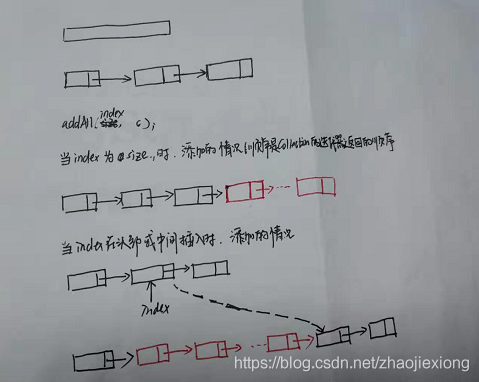 addAll(index, c);
当index为size，时．添加的情况(顺序是Collection的迭代器返回的顺序
当index在头部或中间插入时．添加的情况
index
https://blog.csdn.net/zhaojiexiong